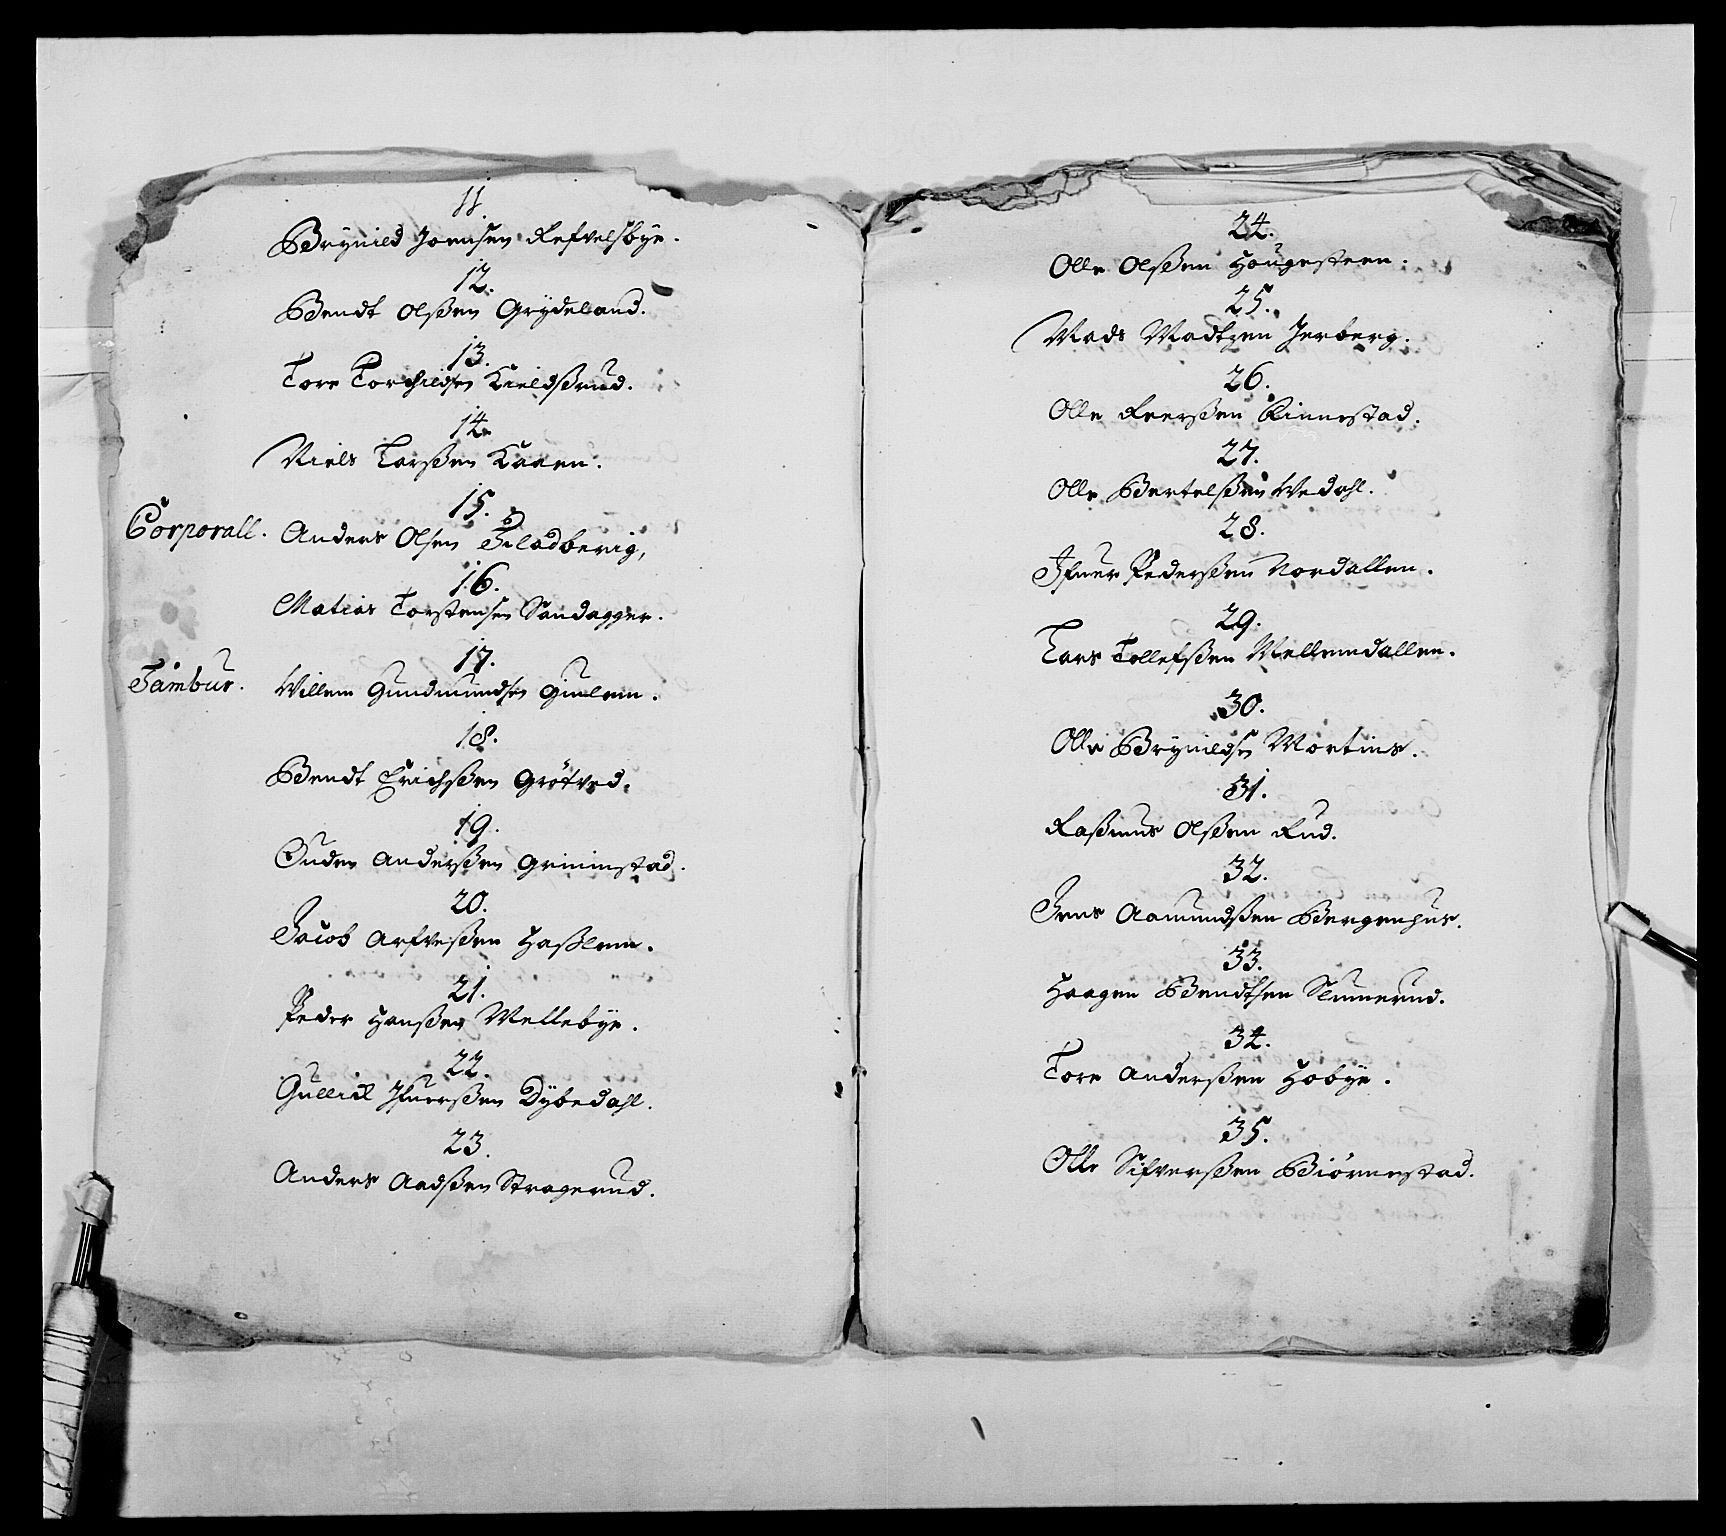 11.
Brynild Joensen Refvelsbye.
12.
Bendt Olßen Grydeland.
13.
Tore Torchildsen Kieldßrud.
14.
Niels Larßen Kaaen.
15.
Corporall. Anders Olsen
16.
Matias Torstensen Sandagger.
17.
Tambur. Willem Gundmundsen Giulem.
18.
Bendt Erichßen Grötved.
19.
Guden Anderßen Grimmstad.
20.
Jacob Arfveßen Haßlem.
21.
Peder Hanßen Mellebye.
22.
Gullick Ifuerßen Dybedahl.
23.
Anders Aadßen Stragerud.
24.
Olle Olßen Hougesteen.
25.
Mads Madtzen Jerberg.
26.
Olle Reerßen Rinnestad.
27.
Olle Bertelßen Wedahl.
28.
Ifuer Pederßen Nordallen.
29.
Lars Tollefßen Mellemdallen.
30.
Olle Brynildsen Mortins.
31.
Raßmus Olßen Rud.
32.
Jens Aamundßen Bergenhus.
33.
Haagen Bendtsen Slumerud.
34.
Tore Anderßen Hobye.
35.
Olle Sifverßen Biörnestad.